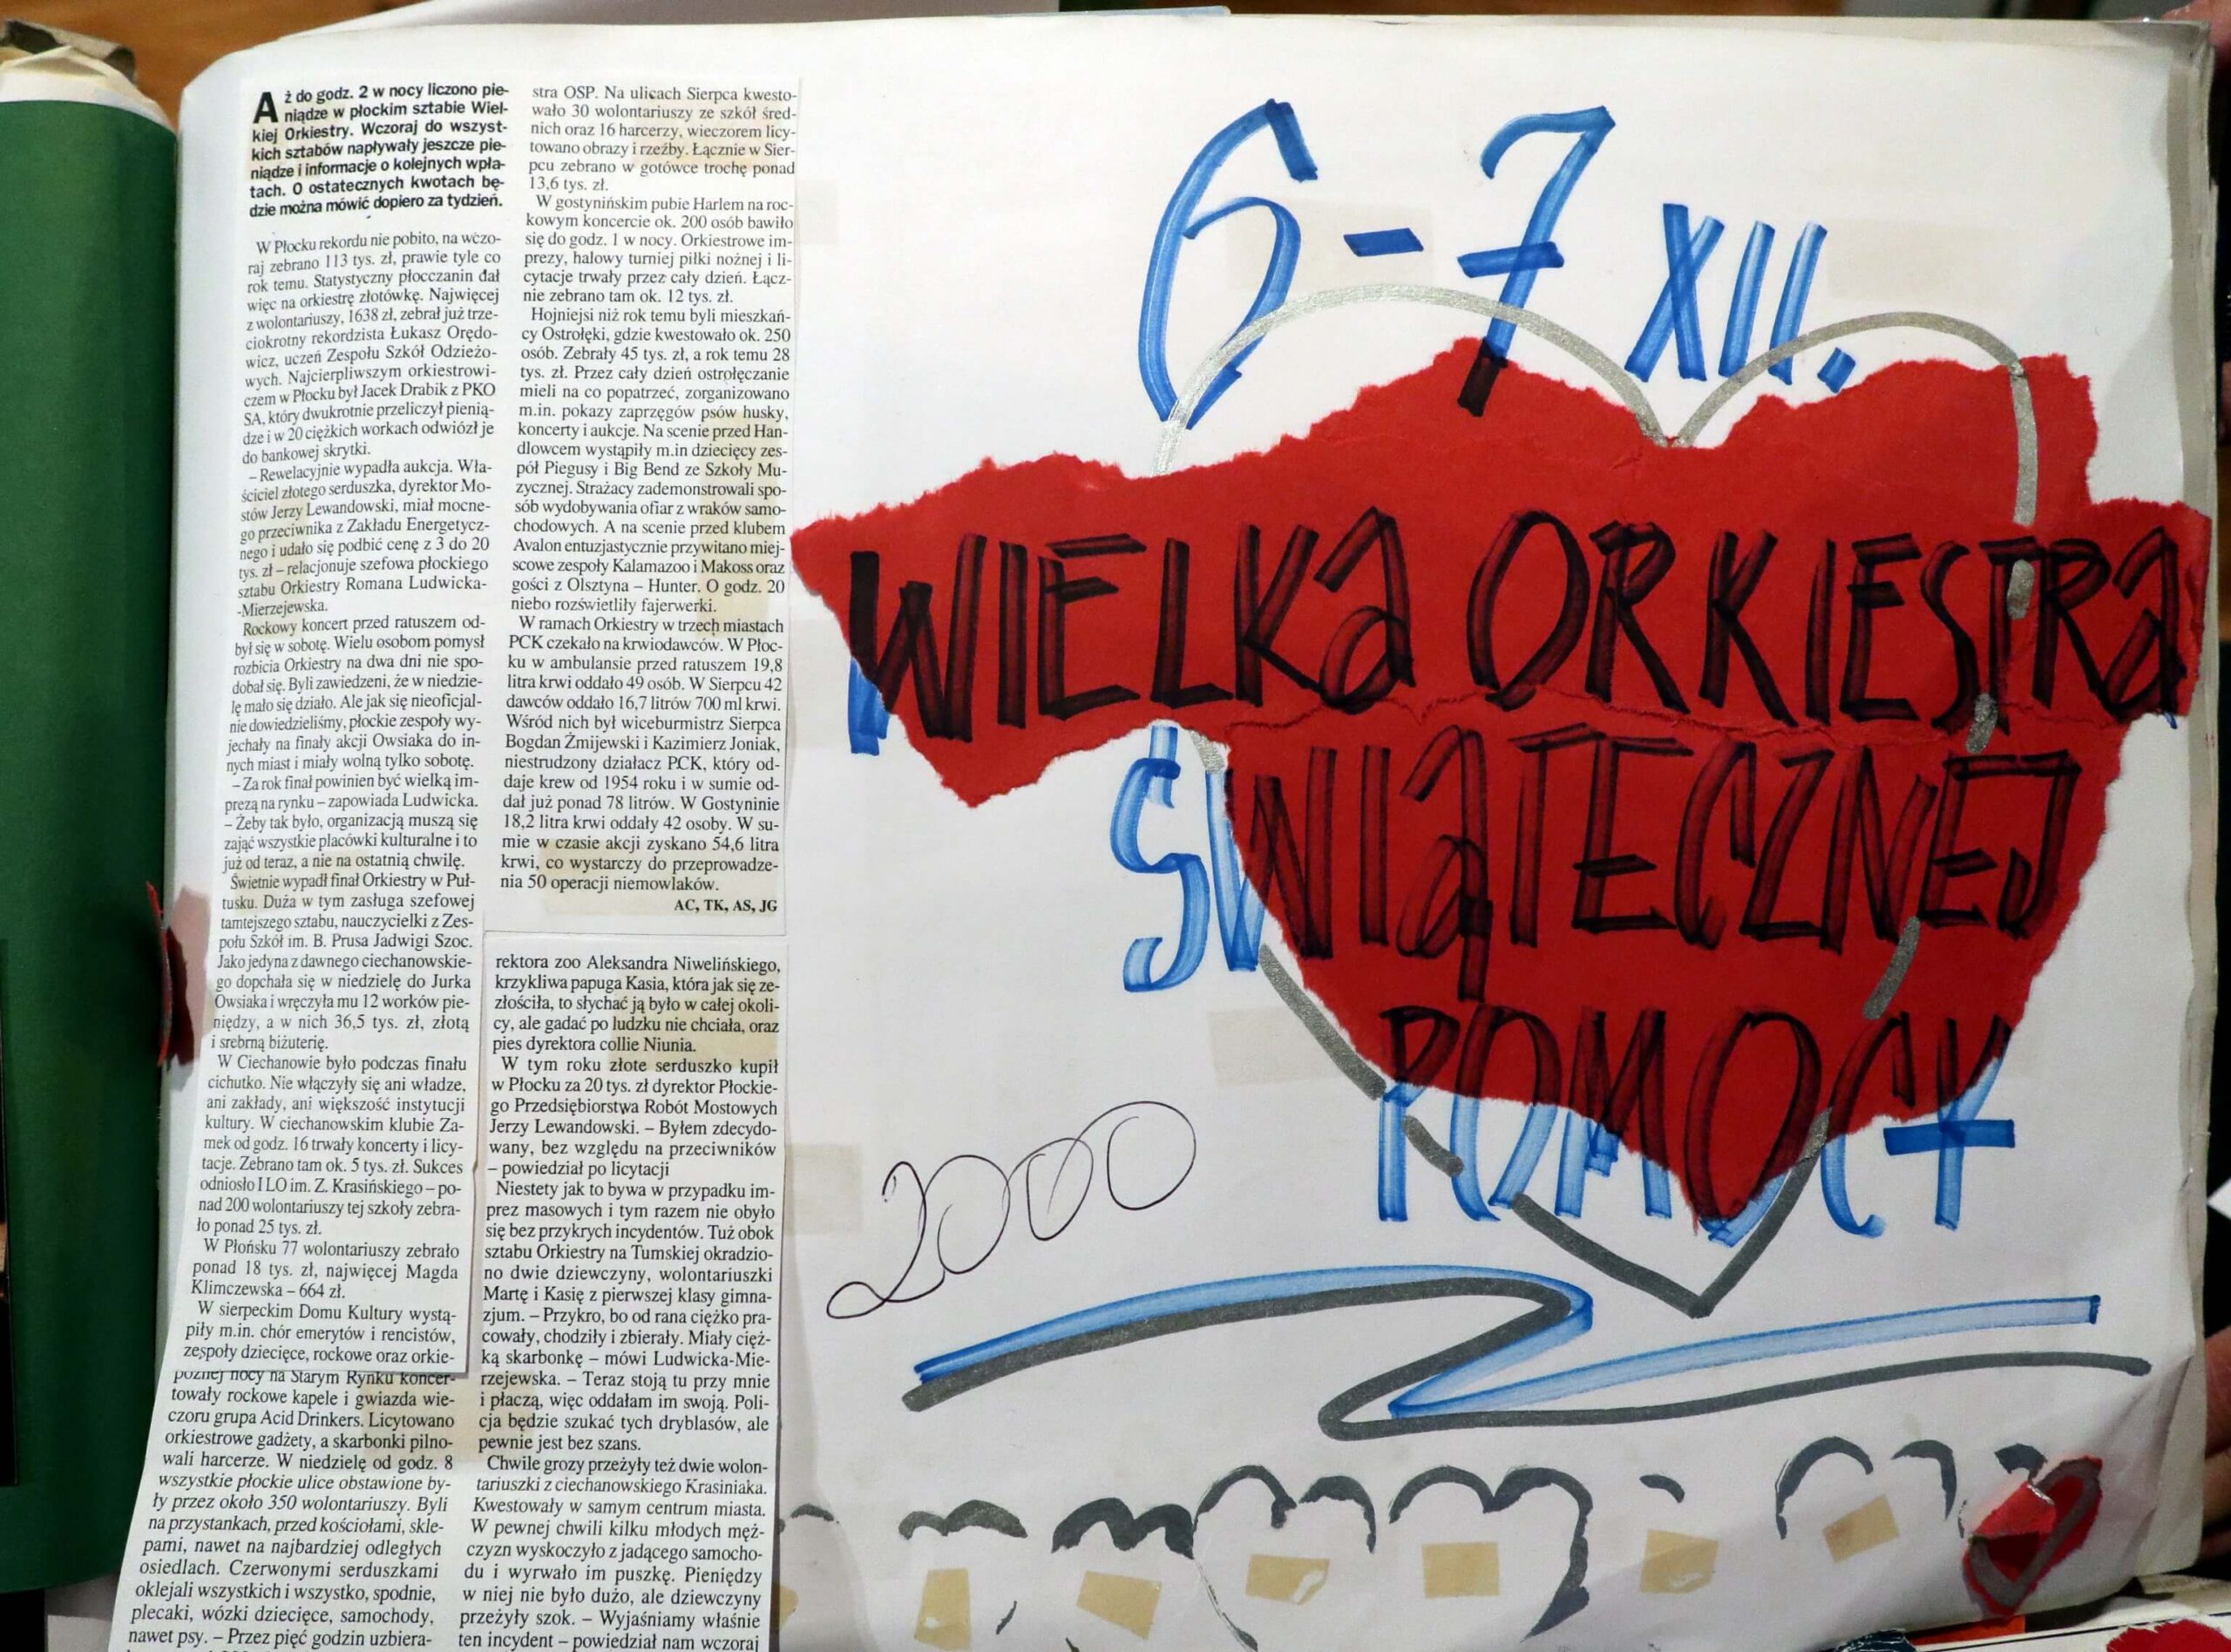 Aż do godz. 2 w nocy liczono pie-
niądze w płockim sztabie Wiel-
kiej Orkiestry. Wczoraj do wszyst-
kich sztabów napływały jeszcze pie-
niądze i informacje o kolejnych wpła-
tach. O ostatecznych kwotach bę-
dzie można mówić dopiero za tydzień.
W Płocku rekordu nie pobito, na wczo-
raj zebrano 113 tys. zł, prawie tyle co
rok temu. Statystyczny płocczanin dał
więc na orkiestrę złotówkę. Najwięcej
z wolontariuszy, 1638 zł, zebrał już trze-
ciokrotny rekordzista Łukasz Orędo-
wicz, uczeń Zespołu Szkół Odzieżo-
wych. Najcierpliwszym orkiestrowi-
czem w Płocku był Jacek Drabik z PKO
SA, który dwukrotnie przeliczył pienią-
dze i w 20 ciężkich workach odwiózł je
do bankowej skrytki.
– Rewelacyjnie wypadła aukcja. Wła-
ściciel złotego serduszka, dyrektor Mo-
stów Jerzy Lewandowski, miał mocne-
go przeciwnika z Zakładu Energetycz-
nego i udało się podbić cenę z 3 do 20
tys. zł – relacjonuje szefowa płockiego
sztabu Orkiestry Romana Ludwicka-
-Mierzejewska.
Rockowy koncert przed ratuszem od-
był się w sobotę. Wielu osobom pomysł
rozbicia Orkiestry na dwa dni nie spo-
dobał się. Byli zawiedzeni, że w niedzie-
lę mało się działo. Ale jak się nieoficjal-
nie dowiedzieliśmy, płockie zespoły wy-
jechały na finały akcji Owsiaka do in-
nych miast i miały wolną tylko sobotę.
– Za rok finał powinien być wielką im-
prezą na rynku – zapowiada Ludwicka.
– Żeby tak było, organizacją muszą się
zająć wszystkie placówki kulturalne i to
już od teraz, a nie na ostatnią chwilę.
Świetnie wypadł finał Orkiestry w Puł-
tusku. Duża w tym zasługa szefowej
tamtejszego sztabu, nauczycielki z Zes-
połu Szkół im. B. Prusa Jadwigi Szoc.
Jako jedyna z dawnego ciechanowskie-
go dopchała się w niedzielę do Jurka
Owsiaka i wręczyła mu 12 worków pie-
niędzy, a w nich 36,5 tys. zł, złotą
i srebrną biżuterię.
W Ciechanowie było podczas finału
cichutko. Nie włączyły się ani władze,
ani zakłady, ani większość instytucji
kultury. W ciechanowskim klubie Za-
mek od godz. 16 trwały koncerty i licy-
tacje. Zebrano tam ok. 5 tys. zł. Sukces
odniosło I LO im. Z. Krasińskiego – po-
nad 200 wolontariuszy tej szkoły zebra-
ło ponad 25 tys. zł.
W Płońsku 77 wolontariuszy zebrało
ponad 18 tys. zł, najwięcej Magda
Klimczewska – 664 zł.
W sierpeckim Domu Kultury wystą-
piły m.in. chór emerytów i rencistów,
zespoły dziecięce, rockowe oraz orkie-
stra OSP. Na ulicach Sierpca kwesto-
wało 30 wolontariuszy ze szkół śred-
nich oraz 16 harcerzy, wieczorem licy-
towano obrazy i rzeźby. Łącznie w Sier-
pcu zebrano w gotówce trochę ponad
13,6 tys. zł.
W gostynińskim pubie Harlem na roc-
kowym koncercie ok. 200 osób bawiło
się do godz. 1 w nocy. Orkiestrowe im-
prezy, halowy turniej piłki nożnej i li-
cytacje trwały przez cały dzień. Łącz-
nie zebrano tam ok. 12 tys. zł.
Hojniejsi niż rok temu byli mieszkań-
cy Ostrołęki, gdzie kwestowało ok. 250
osób. Zebrały 45 tys. zł, a rok temu 28
tys. zł. Przez cały dzień ostrołęczanie
mieli na co popatrzeć, zorganizowano
m.in. pokazy zaprzęgów psów husky,
koncerty i aukcje. Na scenie przed Han-
dlowcem wystąpiły m.in dziecięcy zes-
pół Piegusy i Big Bend ze Szkoły Mu-
zycznej. Strażacy zademonstrowali spo-
sób wydobywania ofiar z wraków samo-
chodowych. A na scenie przed klubem
Avalon entuzjastycznie przywitano miej-
scowe zespoły Kalamazoo i Makoss oraz
gości z Olsztyna – Hunter. O godz. 20
niebo rozświetliły fajerwerki.
W ramach Orkiestry w trzech miastach
PCK czekało na krwiodawców. W Płoc-
ku w ambulansie przed ratuszem 19,8
litra krwi oddało 49 osób. W Sierpcu 42
dawców oddało 16,7 litrów 700 ml krwi.
Wśród nich był wiceburmistrz Sierpca
Bogdan Żmijewski i Kazimierz Joniak,
niestrudzony działacz PCK, który od-
daje krew od 1954 roku i w sumie od-
dał już ponad 78 litrów. W Gostyninie
18,2 litra krwi oddały 42 osoby. W su-
mie w czasie akcji zyskano 54,6 litra
krwi, co wystarczy do przeprowadze-
nia 50 operacji niemowlaków.
AC, TK, AS, JG
późnej nocy na Starym Rynku koncer-
towały rockowe kapele i gwiazda wie-
czoru grupa Acid Drinkers. Licytowano
orkiestrowe gadżety, a skarbonki pilno-
wali harcerze. W niedzielę od godz. 8
wszystkie płockie ulice obstawione by-
ły przez około 350 wolontariuszy. Byli
na przystankach, przed kościołami, skle-
pami, nawet na najbardziej odległych
osiedlach. Czerwonymi serduszkami
oklejali wszystkich i wszystko, spodnie,
plecaki, wózki dziecięce, samochody,
nawet psy. – Przez pięć godzin uzbiera-
rektora zoo Aleksandra Niwelińskiego,
krzykliwa papuga Kasia, która jak się ze-
złościła, to słychać ją było w całej okoli-
cy, ale gadać po ludzku nie chciała, oraz
pies dyrektora collie Niunia.
W tym roku złote serduszko kupił
w Płocku za 20 tys. zł dyrektor Płockie-
go Przedsiębiorstwa Robót Mostowych
Jerzy Lewandowski. – Byłem zdecydo-
wany, bez względu na przeciwników
– powiedział po licytacji
Niestety jak to bywa w przypadku im-
prez masowych i tym razem nie obyło
się bez przykrych incydentów. Tuż obok
sztabu Orkiestry na Tumskiej okradzio-
no dwie dziewczyny, wolontariuszki
Martę i Kasię z pierwszej klasy gimna-
zjum. – Przykro, bo od rana ciężko pra-
cowały, chodziły i zbierały. Miały cięż-
ką skarbonkę – mówi Ludwicka-Mie-
rzejewska. – Teraz stoją tu przy mnie
i płaczą, więc oddałam im swoją. Poli-
cja będzie szukać tych dryblasów, ale
pewnie jest bez szans.
Chwile grozy przeżyły też dwie wolon-
tariuszki z ciechanowskiego Krasiniaka.
Kwestowały w samym centrum miasta.
W pewnej chwili kilku młodych męż-
czyzn wyskoczyło z jadącego samocho-
du i wyrwało im puszkę. Pieniędzy
w niej nie było dużo, ale dziewczyny
przeżyły szok. – Wyjaśniamy właśnie
ten incydent – powiedział nam wczoraj
6-7 XII.
WIELKA ORKIESTRA
ŚWIĄTECZNEJ
POMOCY
2000